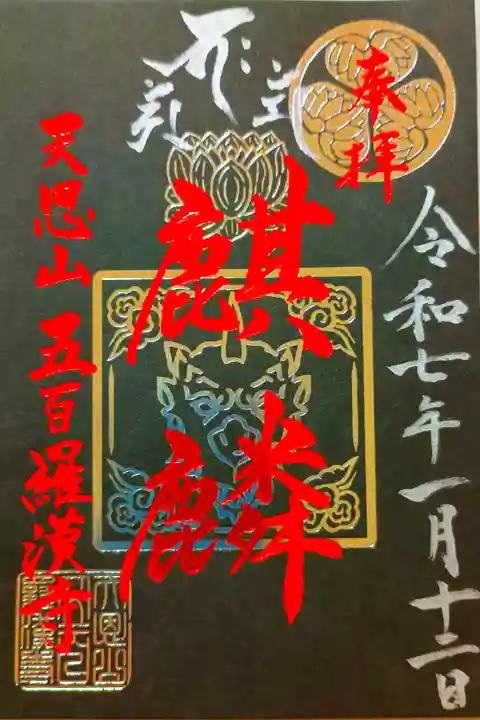 奉拝
令和七年一月十二日
麒麟
天恩山五百羅漢寺